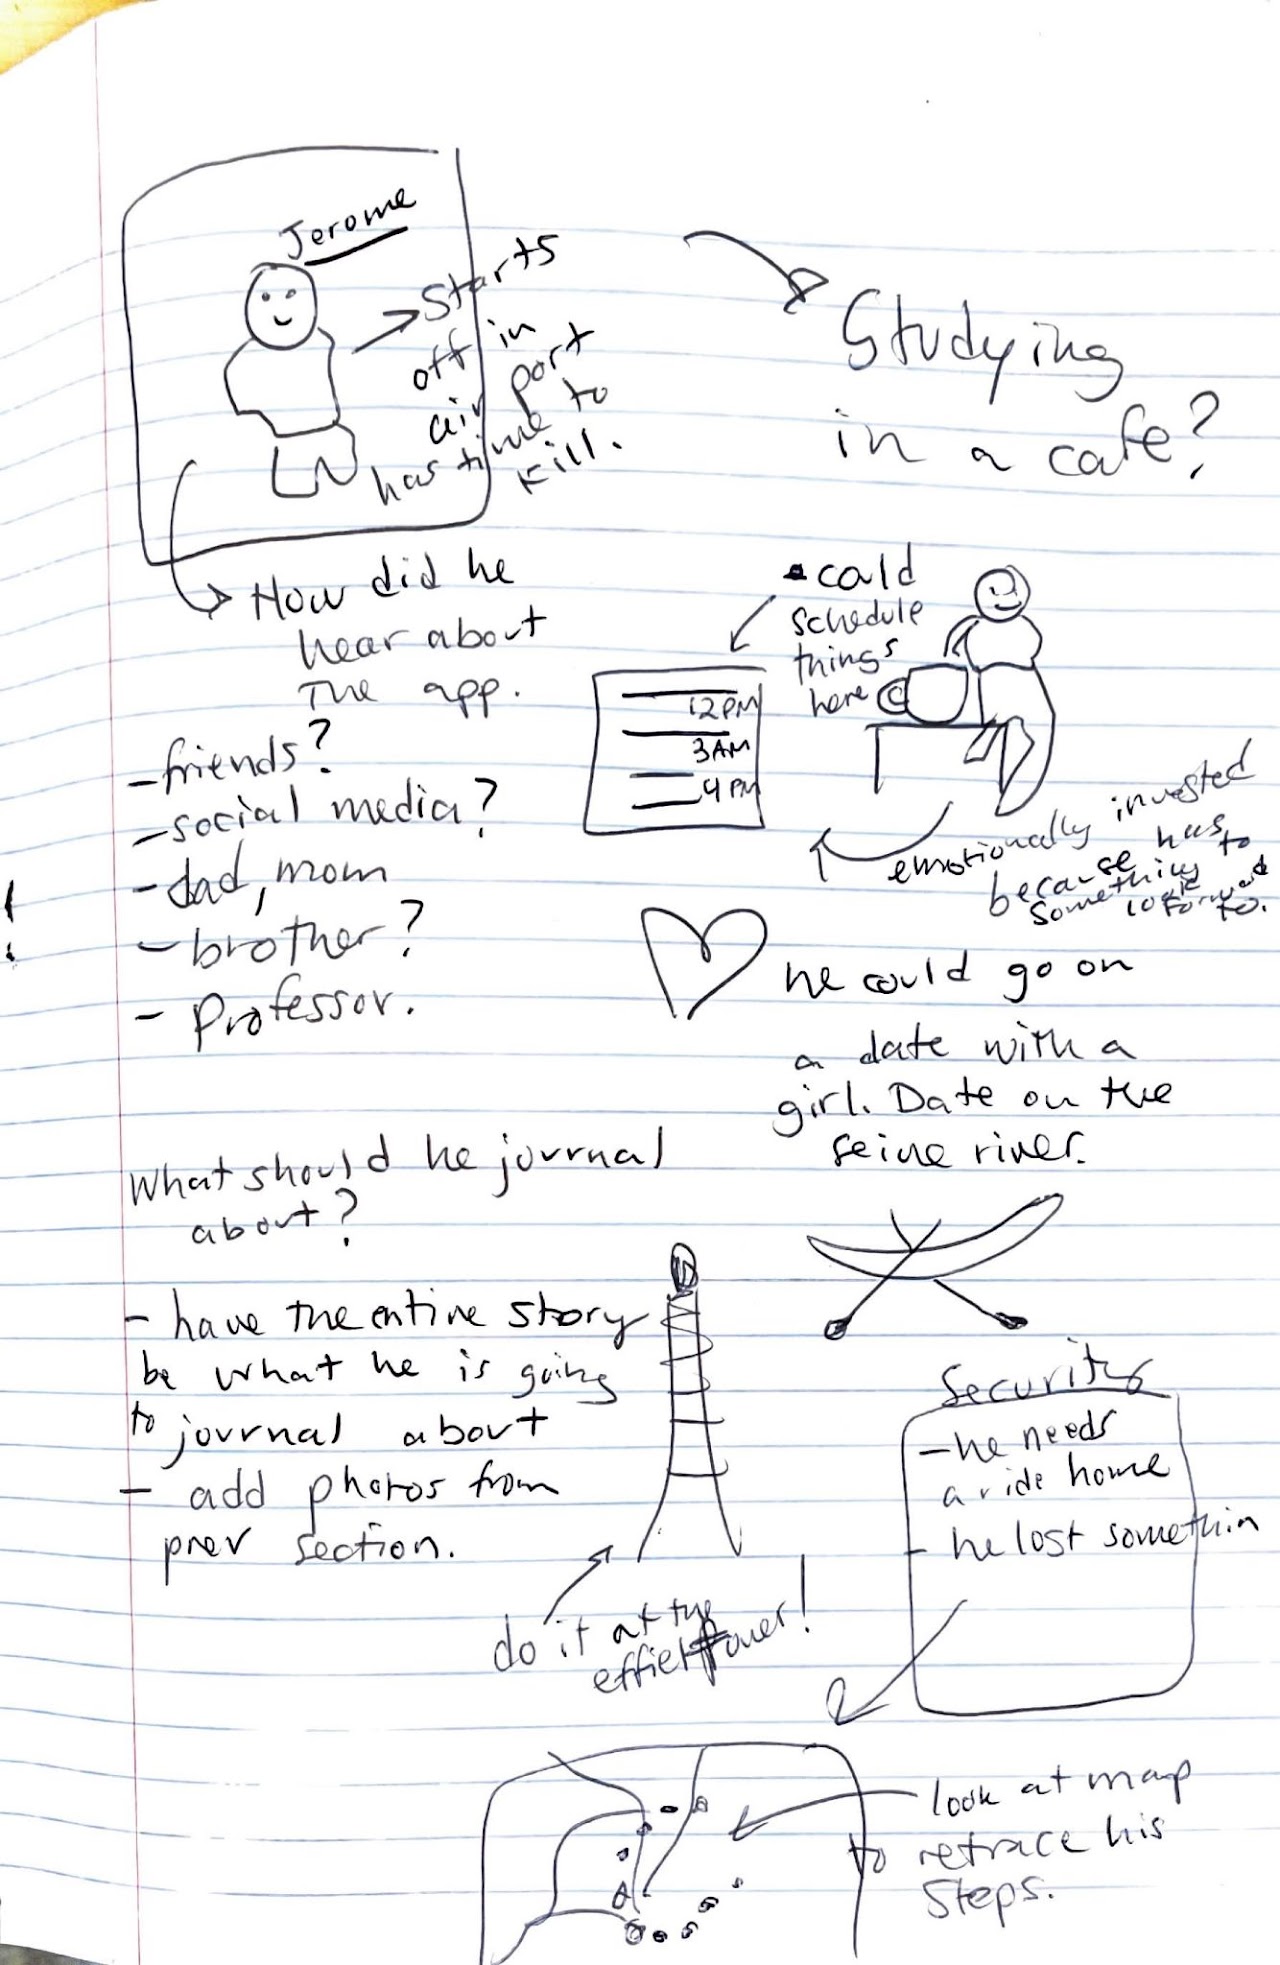 Jerome
Starts
off in
air port
has time to
kill.
How did he
hear about
the app.
- friends?
- social media?
- dad, mom
- brother?
- Professor.
Studying
in a cafe?
could
schedule
things
here
12PM
3AM
4PM
emotionally invested
because has
something to
look forward
to.
he could go on
a date with a
girl. Date on the
seine river.
What should he journal
about?
- have the entire story
be what he is going
to journal about
- add photos from
prev section.
do it at the
effiel tower!
Security
- he needs
a ride home
- he lost somethin
look at map
to retrace his
steps.